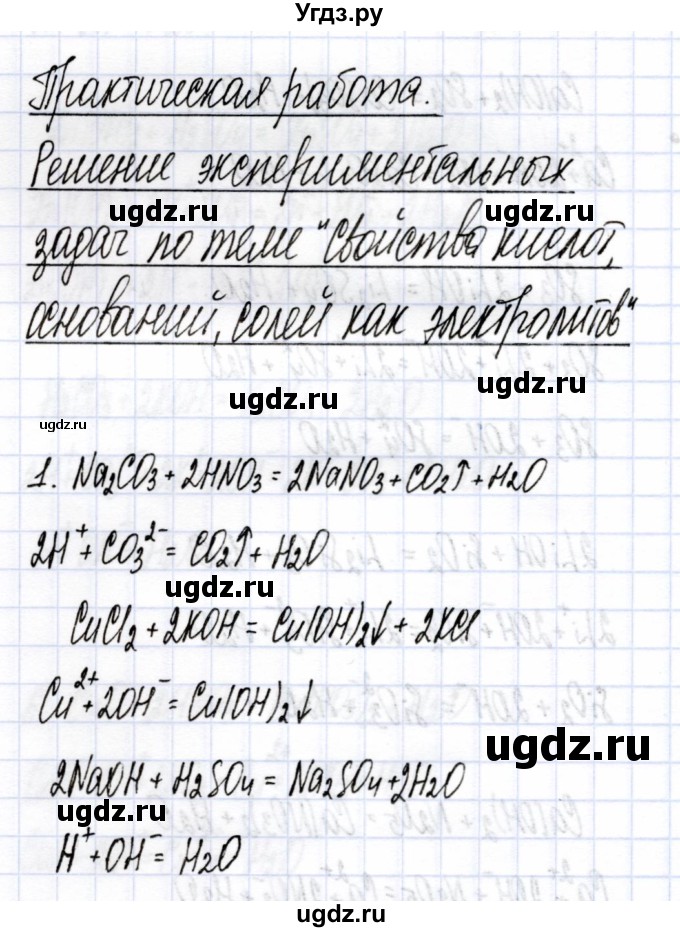 Угдз.ру
Практическая работа.
Решение экспериментальных
ugdz.ru ugdz.ru
задач по теме "Свойства кислот,
оснований, солей как электролитов"
ugdz.ru ugdz.ru
ugdz.ru
1. Na₂CO₃ + 2HNO₃ = 2NaNO₃ + CO₂↑ + H₂O
2H⁺ + CO₃²⁻ = CO₂↑ + H₂O
ugdz.ru
CuCl₂ + 2KOH = Cu(OH)₂↓ + 2KCl
Cu²⁺ + 2OH⁻ = Cu(OH)₂↓
ugdz.ru
2NaOH + H₂SO₄ = Na₂SO₄ + 2H₂O
ugdz.ru
H⁺ + OH⁻ = H₂O
ugdz.ru